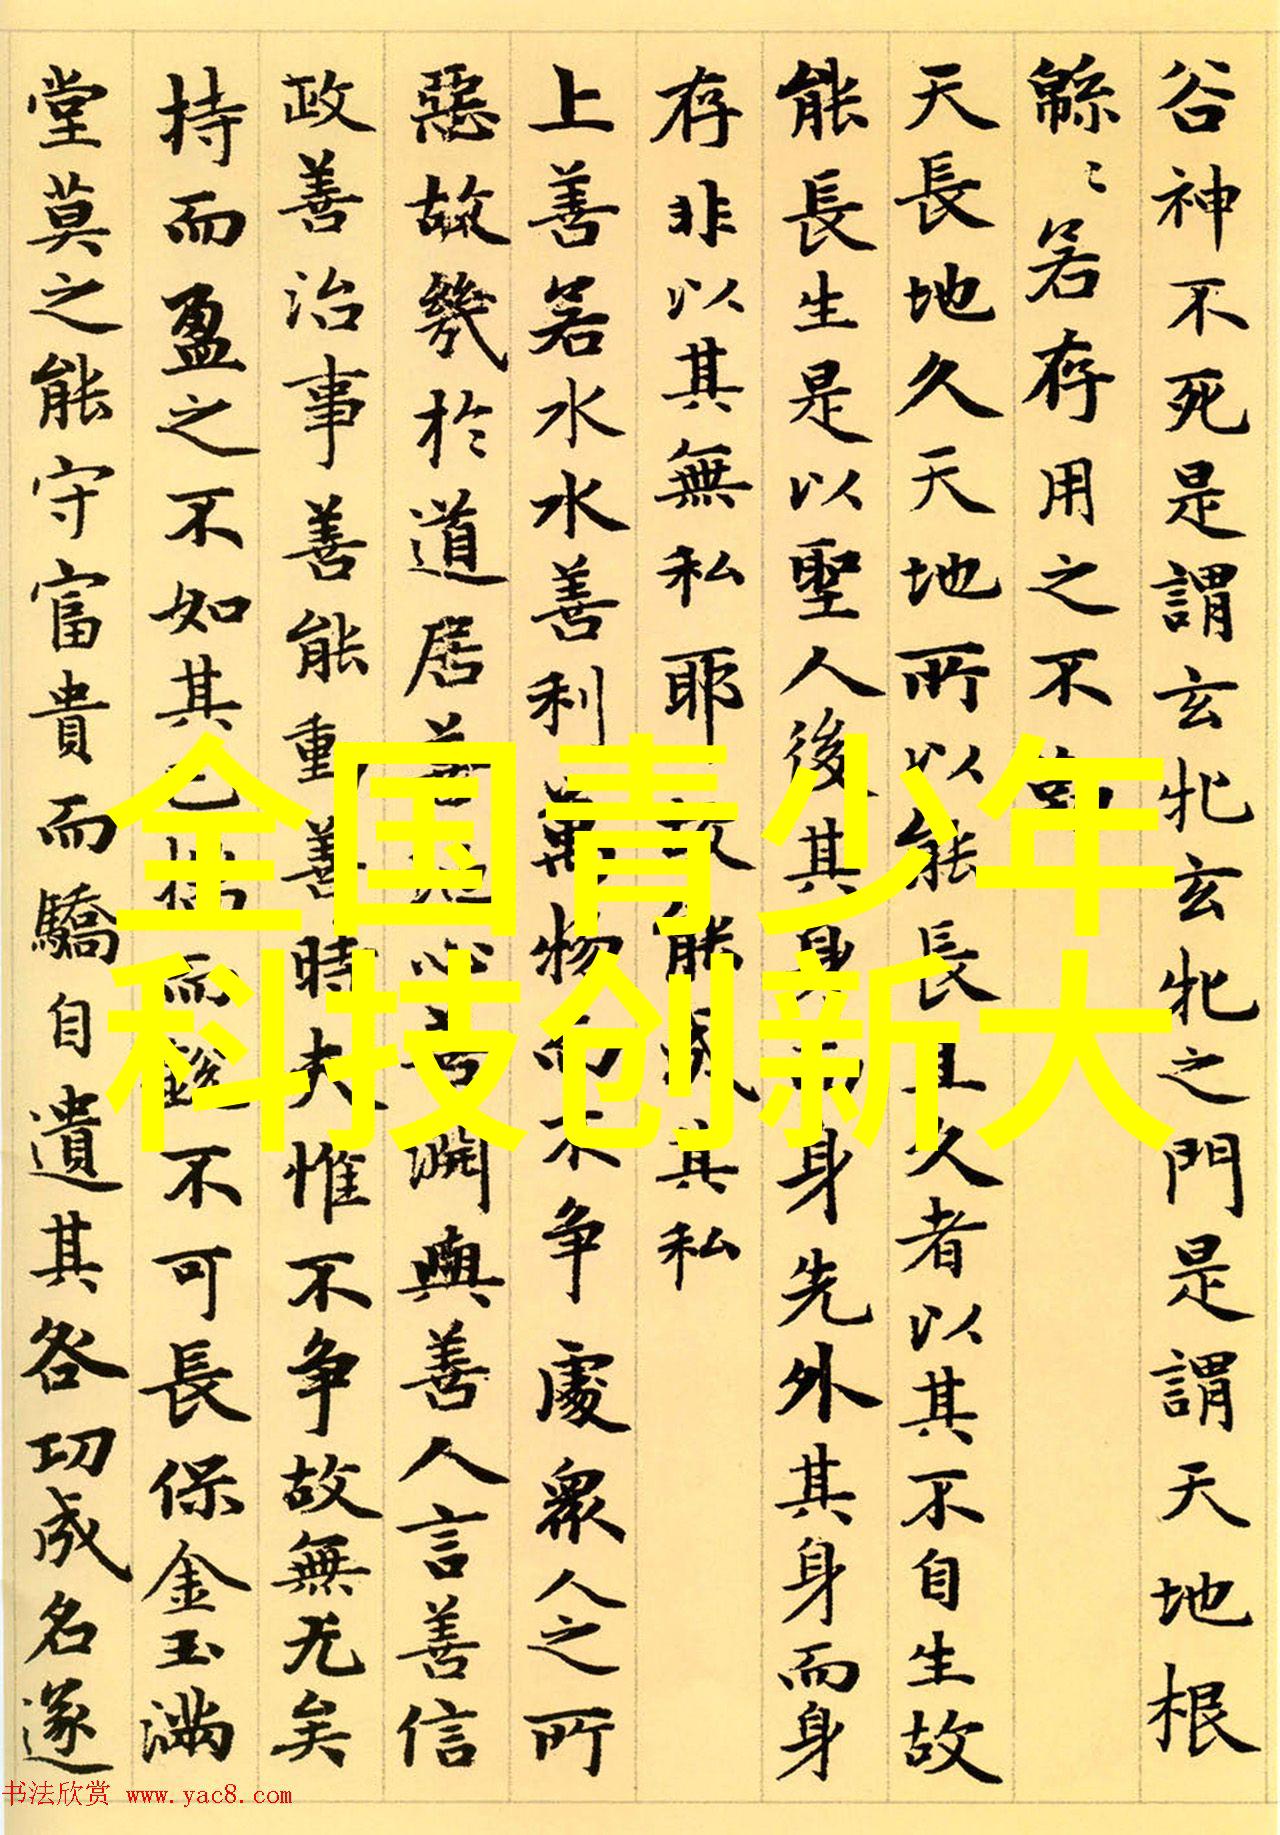 谷神不死是謂玄牝玄牝之門是謂天地根
緜〻若存用之不
天長地久天地所以能長且久者以其不自生故
能長生是以聖人後其身而身先外其身而身
存非以其無私耶故能成其私
上善若水水善利萬物而不争處衆人之所
惡故幾於道居善地心善淵與善人言善信
政善治事善能動善時夫惟不争故無尤矣
持而盈之不如其已揣而銳不可長保金玉滿
堂莫之能守富貴而驕自遺其咎功成名遂
全国青少年
科技创新大
书法欣赏 www.yac8.com